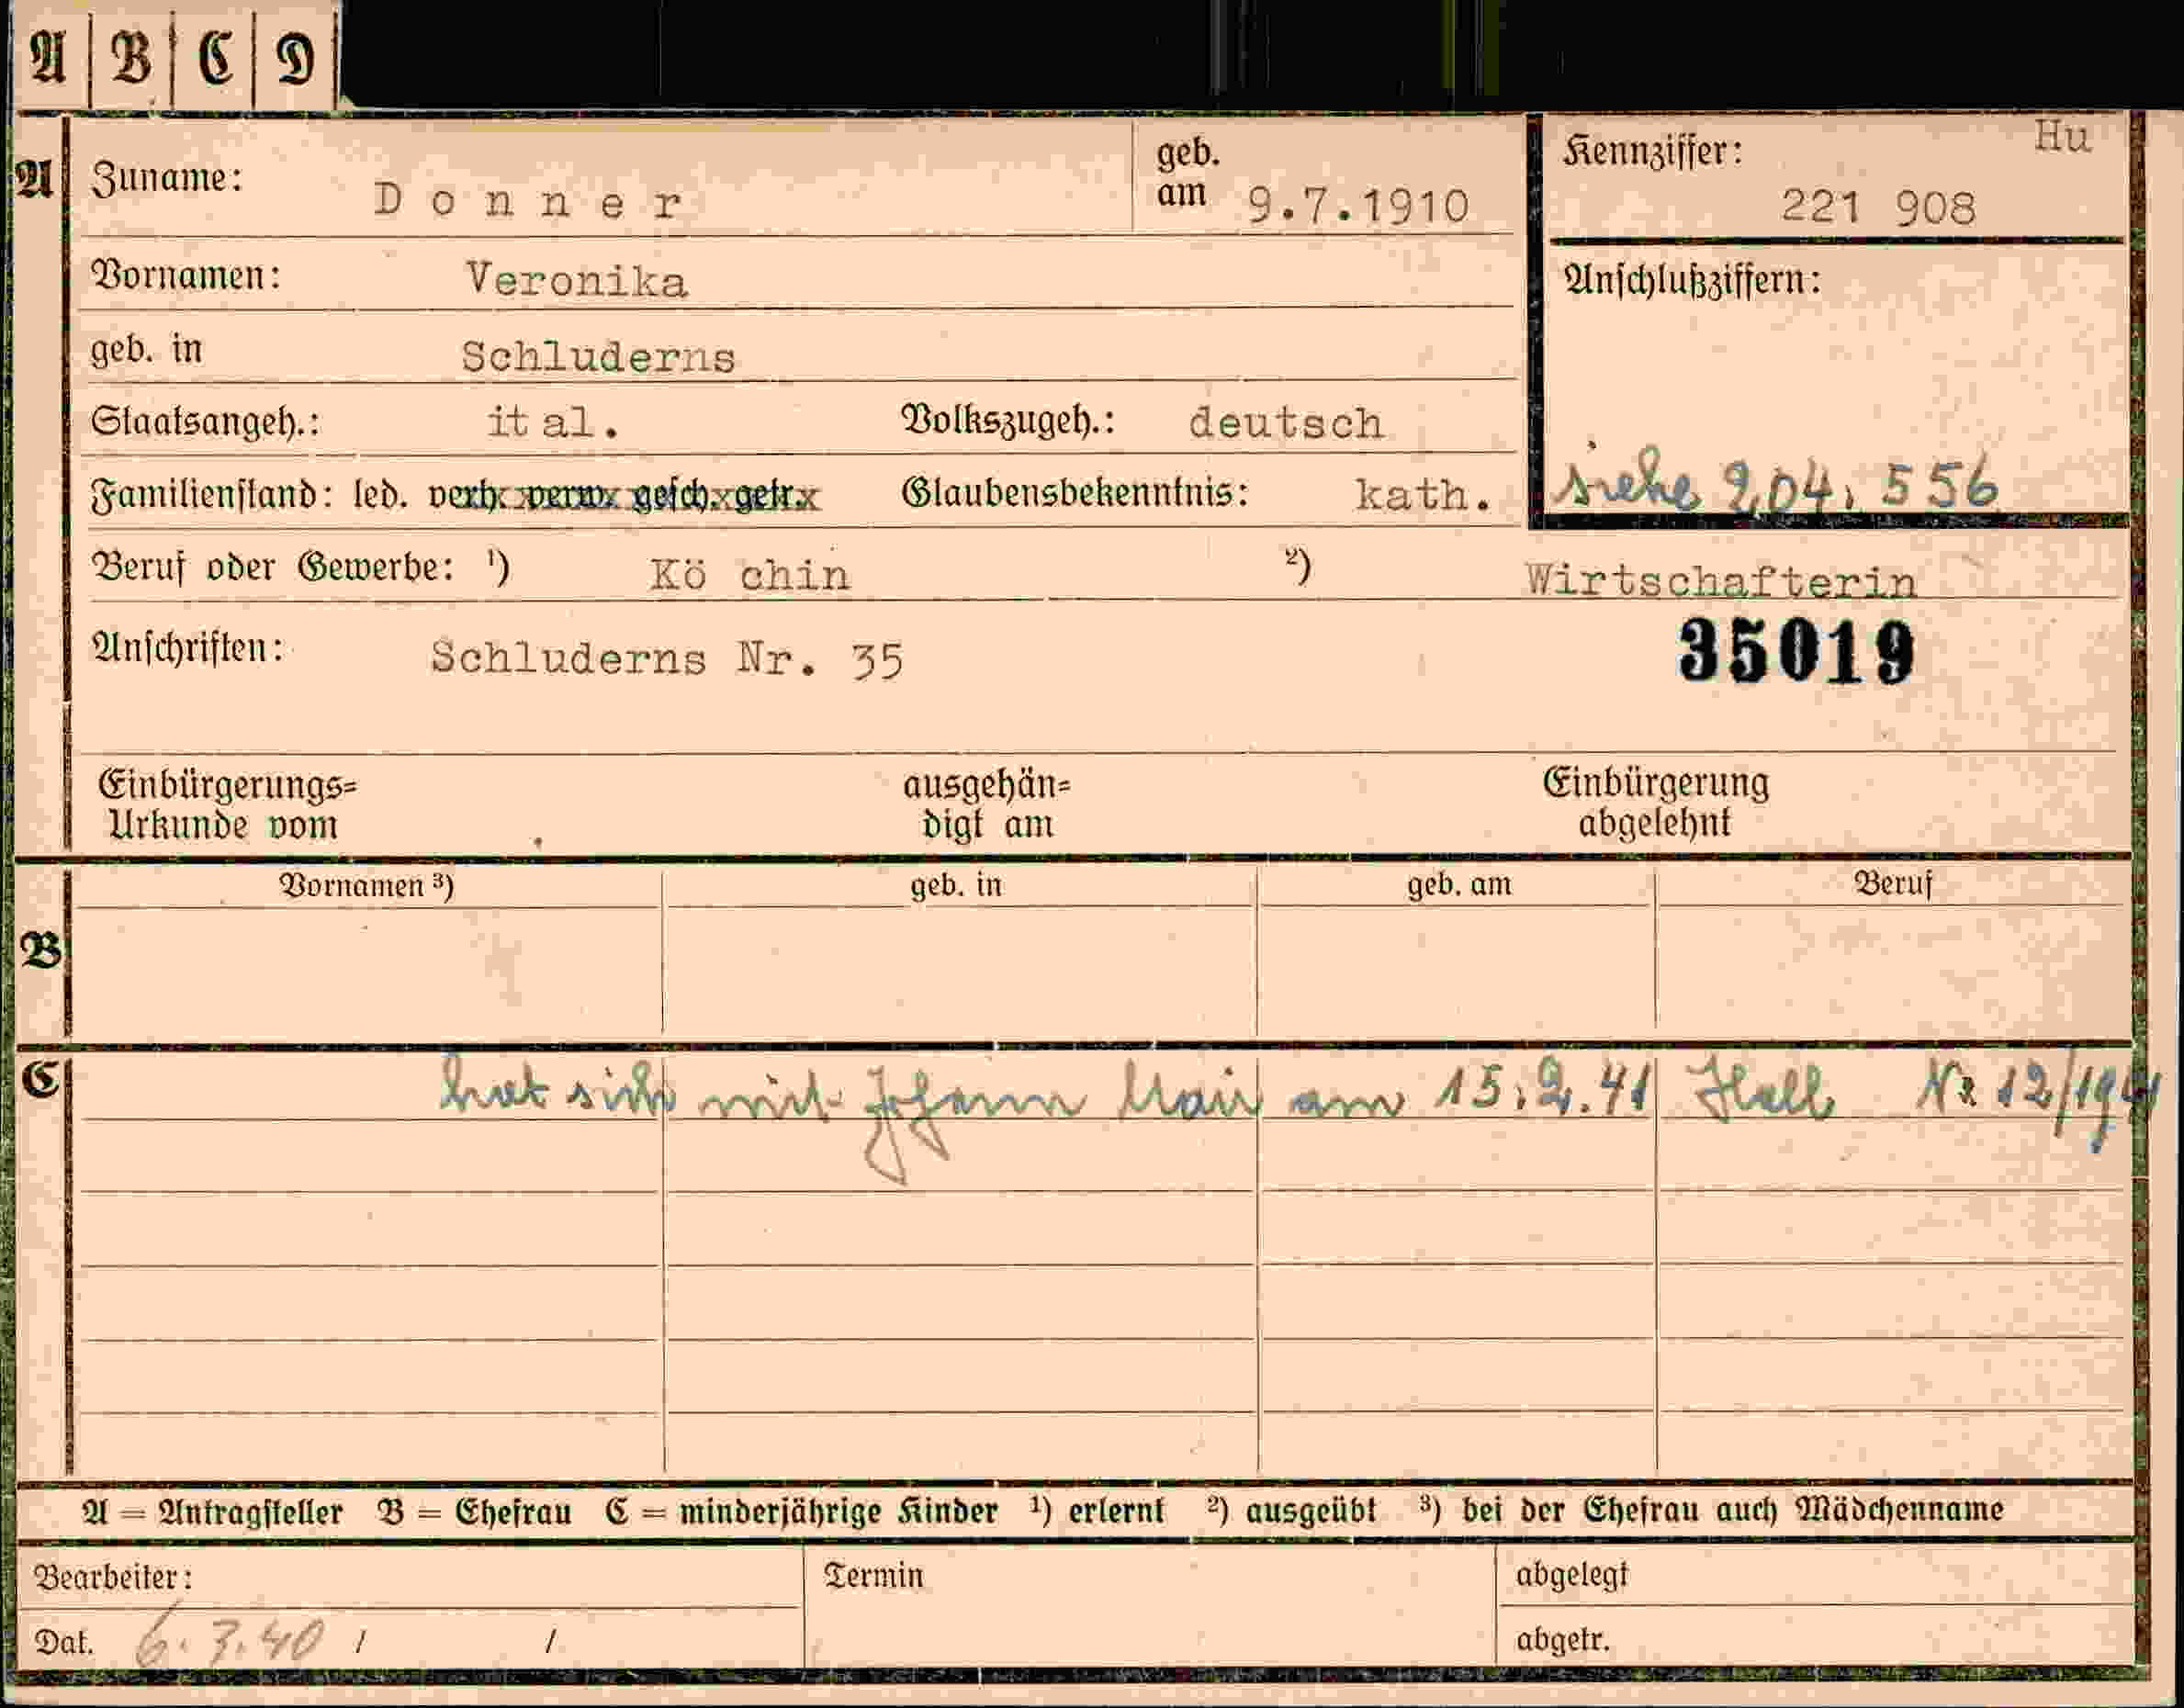 A B C D
Hu
A Zuname: Donner geb. am 9.7.1910 Kennziffer: 221 908
Vornamen: Veronika Anschlußziffern:
geb. in Schluderns
Staatsangeh.: ital. Volkszugeh.: deutsch
Familienstand: led. verh. verw. gesch. getr. Glaubensbekenntnis: kath. siehe 204, 556
Beruf oder Gewerbe: 1) Kö chin 2) Wirtschafterin
Anschriften: Schluderns Nr. 35 35019
Einbürgerungs= ausgehän= Einbürgerung
Urkunde vom digt am abgelehnt
Vornamen 3) geb. in geb. am Beruf
B
C hat sich mit Johann Mair am 15.2.41 Hall Nr 12/1941
A = Antragsteller B = Ehefrau C = minderjährige Kinder 1) erlernt 2) ausgeübt 3) bei der Ehefrau auch Mädchenname
Bearbeiter: Termin abgelegt
Dat. 6.3.40 / / abgetr.